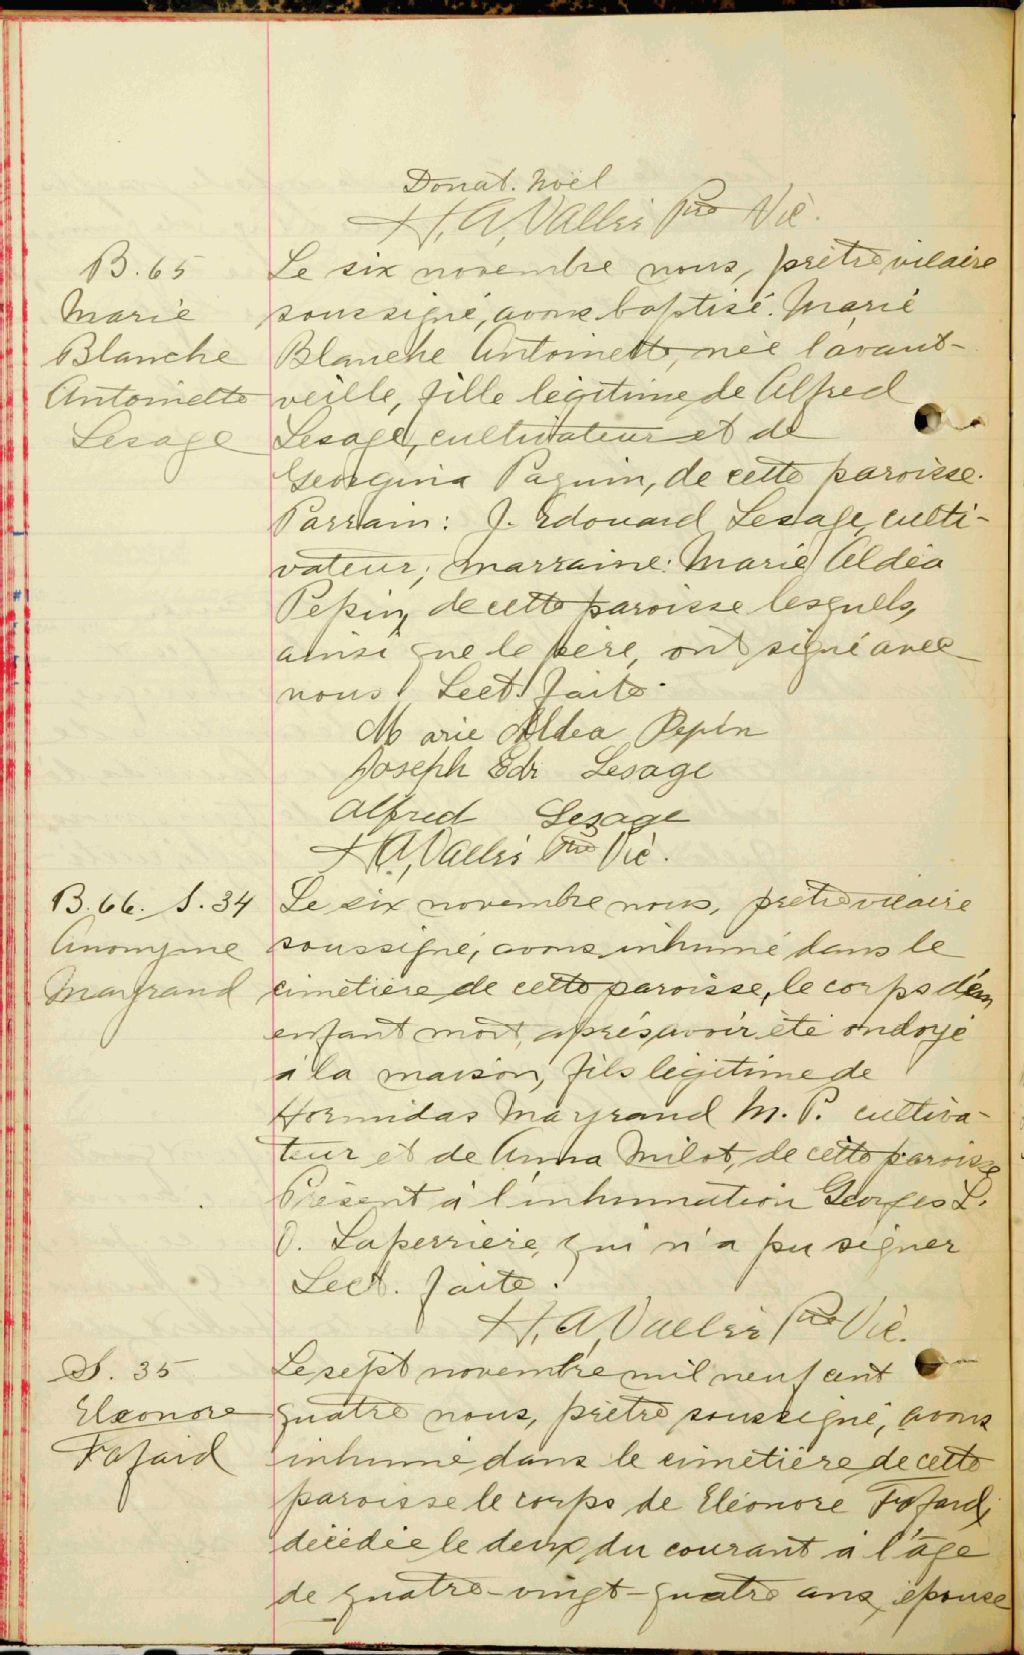 Donat. Noël
H. A. Vallée Ptre Vic.
B. 65
Marie
Blanche
Antoinette
Lesage
Le six novembre nous, prêtre vicaire
soussigné, avons baptisé. Marie
Blanche Antoinette, née l'avant-
veille, fille légitime de Alfred
Lesage, cultivateur et de
Georgina Paquin, de cette paroisse.
Parrain: J. Edouard Lesage, culti-
vateur; marraine: Marie Aldéa
Pepin, de cette paroisse lesquels,
ainsi que le père, ont signé avec
nous. Lect. faite.
Marie Aldea Pepin
Joseph Edr Lesage
Alfred Lesage
H. A. Vallée Ptre Vic.
B. 66. S. 34
Anonyme
Mayrand
Le six novembre nous, prêtre vicaire
soussigné, avons inhumé dans le
cimetière de cette paroisse, le corps d'un
enfant mort, après avoir été ondoyé
à la maison, fils légitime de
Hormidas Mayrand M. P. cultiva-
teur et de Anna Milot, de cette paroisse
Présent à l'inhumation Georges L.
O. Laperrière, qui n'a pu signer
Lect. faite.
H. A. Vallée Ptre Vic.
S. 35
Eleonore
Fafard
Le sept novembre mil neuf cent
quatre nous, prêtre soussigné, avons
inhumé dans le cimetière de cette
paroisse le corps de Eléonore Fafard,
décédée le deux du courant à l'âge
de quatre-vingt-quatre ans, épouse